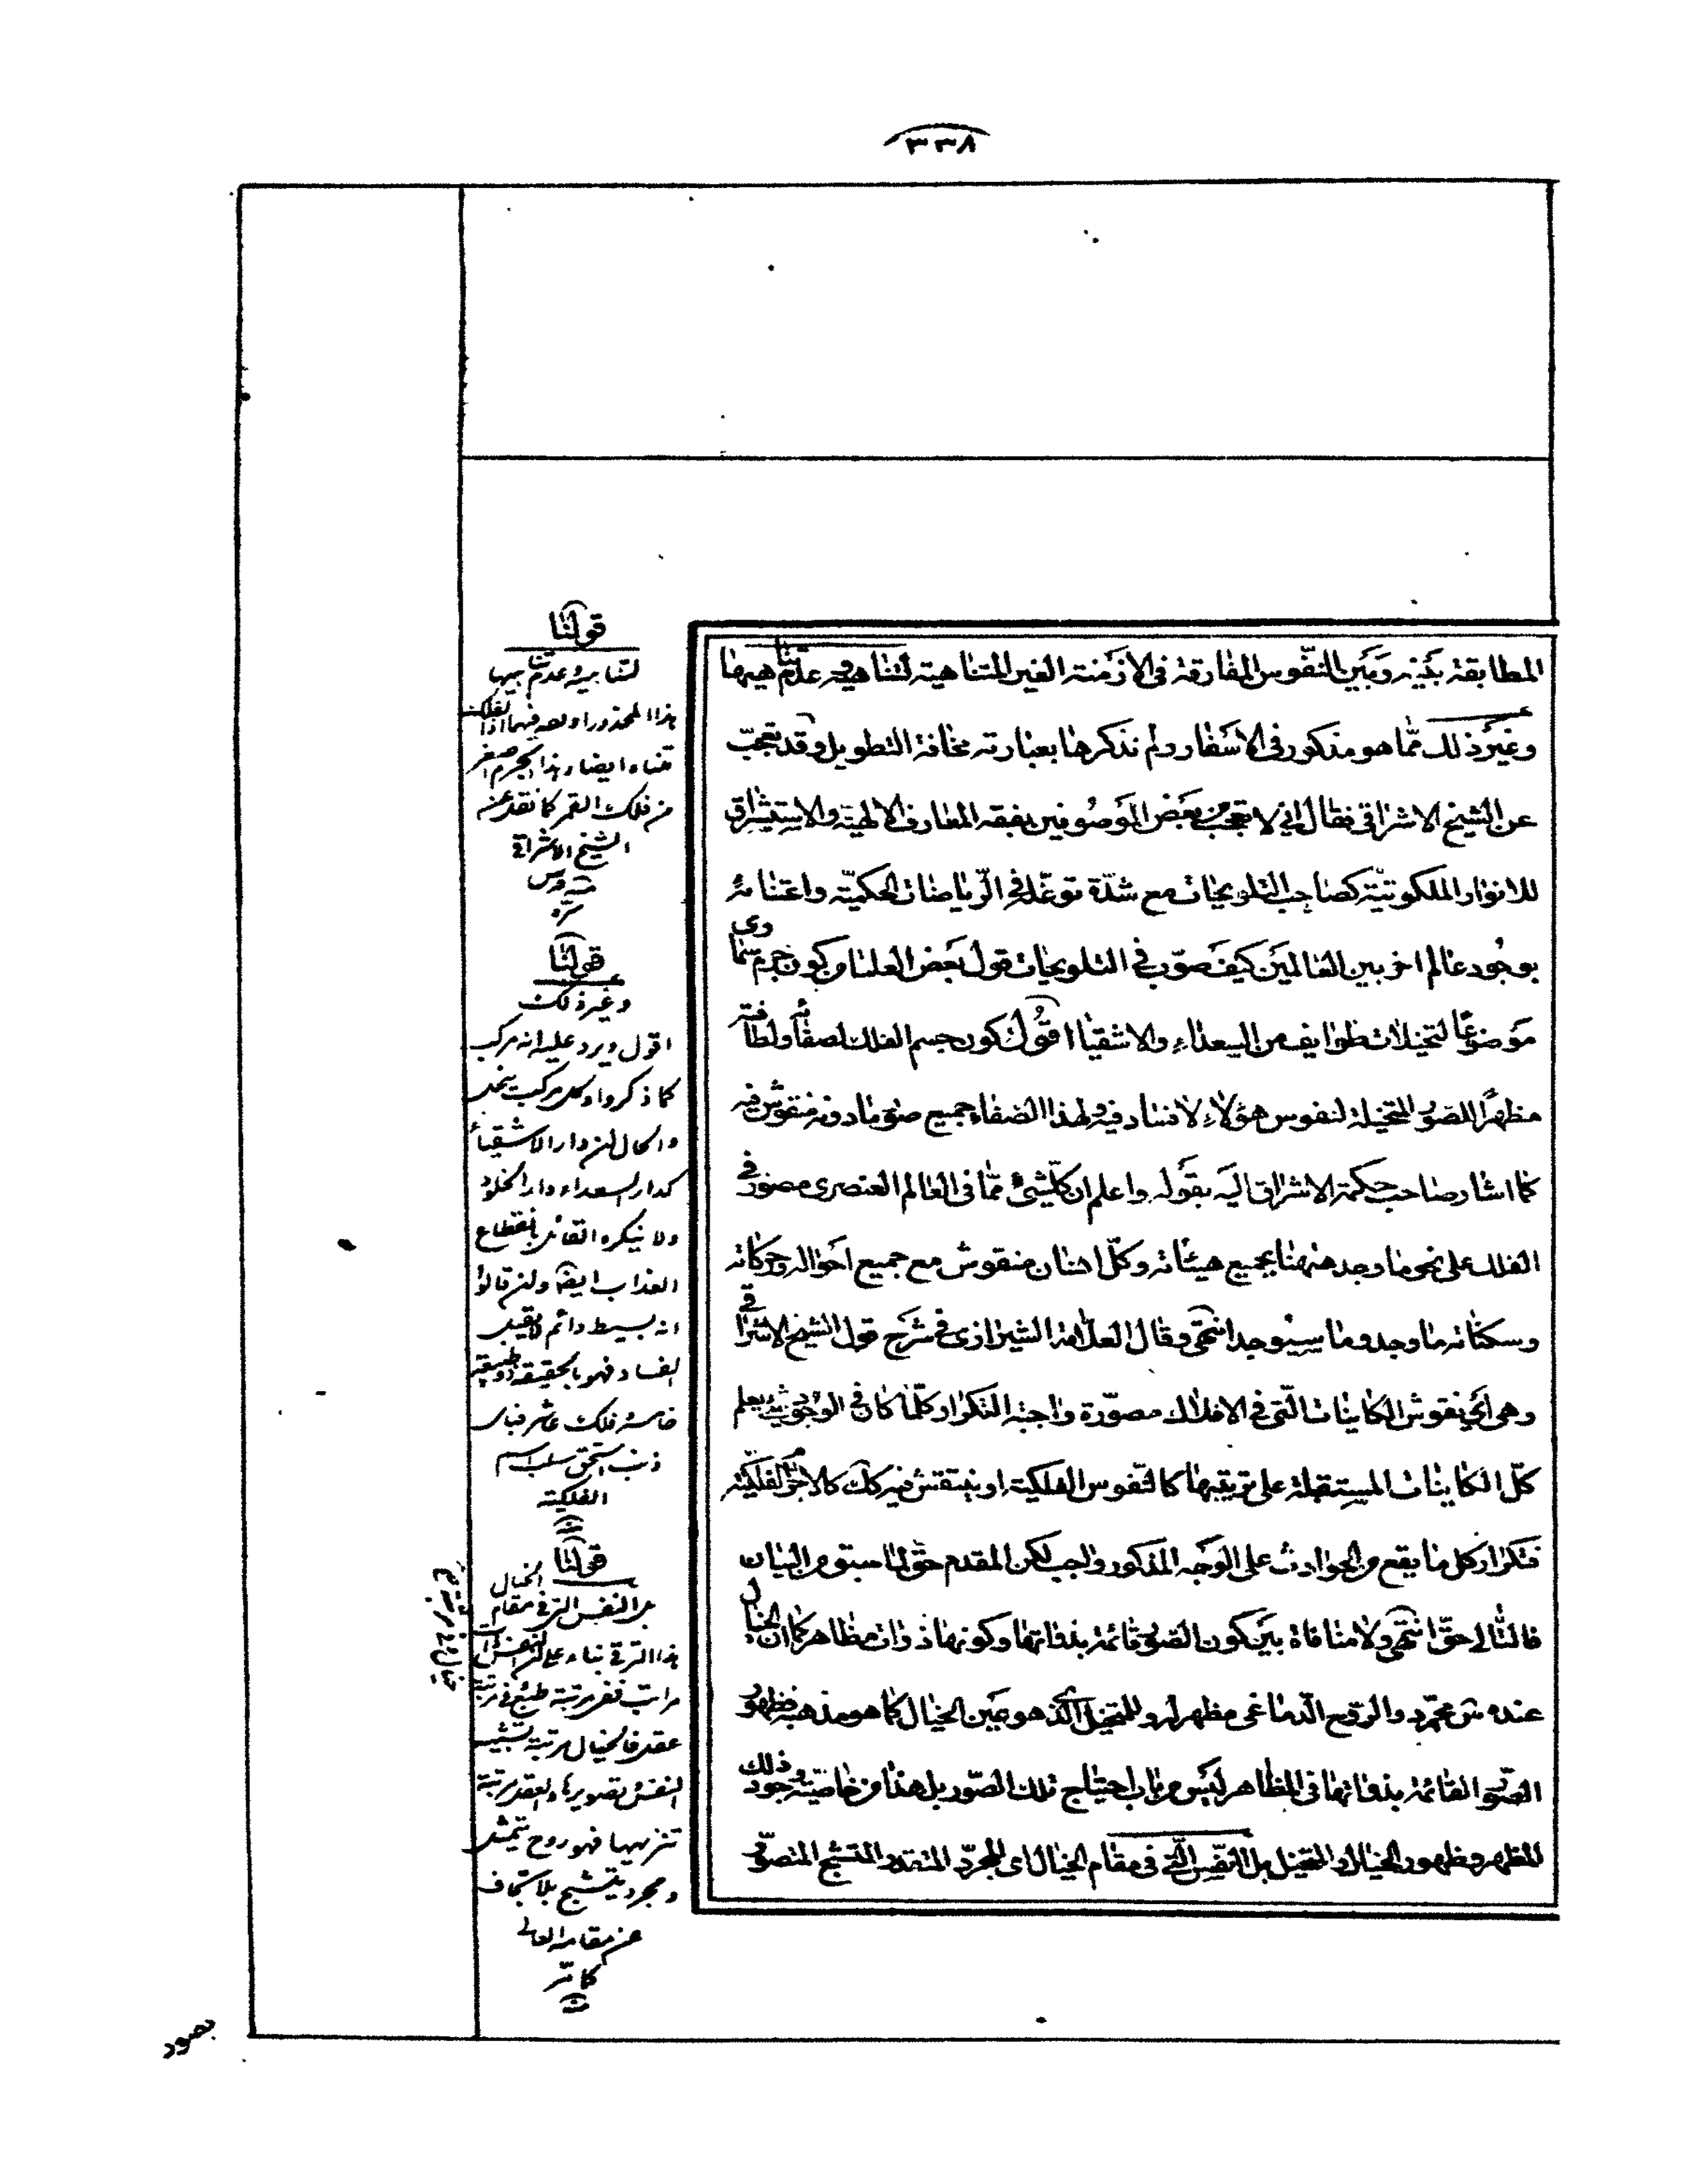 ٣٣٨
المطابقة بينه وبين النفوس المفارقة فى الازمنة الغير المتناهية لتناهيه وعدم تناهيها
وغير ذلك ممّا هو مذكور فى الاسفار ولم نذكرها بعبارته مخافة التطويل وقد تعجّب
عن الشيخ الاشراقى فقال انى لا تعجب من بعض الموصوفين بفقه المعارف الالهية والاستشراق
للانوار الملكوتيّة كصاحب التلويحات مع شدّة توغّله فى الرّياضات الحكميّة واعتنائه
بوجود عالم اخر بين العالمين كيف صوّب فى التلويحات قول بعض العلماء من كون جرم سماوى
موضوعًا لتخيلات طوايف من السعداء والاشقياء اقول كون جسم الفلك لصفائه ولطافته
مظهرًا للصور المتخيلة لنفوس هؤلاء لا فساد فيه ولهذا الصفاء جميع صور ما دونه منقوش فيه
كما اشار صاحب حكمة الاشراق اليه بقوله واعلم ان كلّ شئ ممّا فى العالم العنصرى مصور فى
الفلك على نحو ما وجد ههنا بجميع هيئاته وكلّ انسان منقوش مع جميع احواله وحركاته
وسكناته ما وجد وما سيوجد انتهى وقال العلّامة الشيرازى فى شرح قول الشيخ الاشراقى
وهى اى نقوش الكاينات التّى فى الافلاك مصوّرة واجبة التكرار كلّما كان فى الوجود شئ يعلم
كلّ الكاينات المستقبلة على ترتيبها كالنّفوس الفلكية او ينتقش فيه كك كالاجرام الفلكيّة
فتكرار كل ما يقع من الحوادث على الوجه المذكور واجب لكن المقدم حقّ لما سبق من البيان
فالتّالى حقّ انتهى ولا منافاة بين كون الصور قائمة بذواتها وكونها ذوات مظاهر كما ان الخيال
عنده س مجرّد والروح الدّماغى مظهر له وللمتخيل الّذى هو عين الخيال كما هو مذهبه فظهور
الصّور القائمة بذواتها فى المظاهر ليس من باب احتياج تلك الصّور بل هذا من خاصّية وجود ذلك
المظهر وظهور الخيال والمتخيل بل النّفس الّتى فى مقام الخيال اى المجرّد المتقدر المتشبح المتصوّر
قولنا
لتناهيه وعدم تناهيها
هذا المحذور
تناه ايضا وهذا الجرم اصغر
من فلك القمر كما نقل عن
الشيخ الاشراقى
قدس
سرّه
قولنا
وغير ذلك
اقول ويرد عليه انه مركب
كما ذكروا وكل مركب ينحل
والحال ان دار الاشقياء
كدار السعداء دار الخلود
ولا ينكره القائل بانقطاع
العذاب ايضا وان قالوا
انه بسيط دائم لا يقبل
الفساد فهو بالحقيقة ذو طبيعة
خامسة فلك عاشر فباى
ذنب استحق سلب اسم
الفلكية
قولنا
بل النفس التى فى مقام الخيال
هذا الترقى بناء على ان للنفس
مراتب ففى مرتبة طبع وفى مرتبة
عقل فالخيال مرتبة تشبيه
النفس بصويرها والعقل مرتبة
تنزيهها فهو روح يتمثل
ومجرد يتشبح بلا تجاف
عن مقامه العالى
كما مّر
بصور